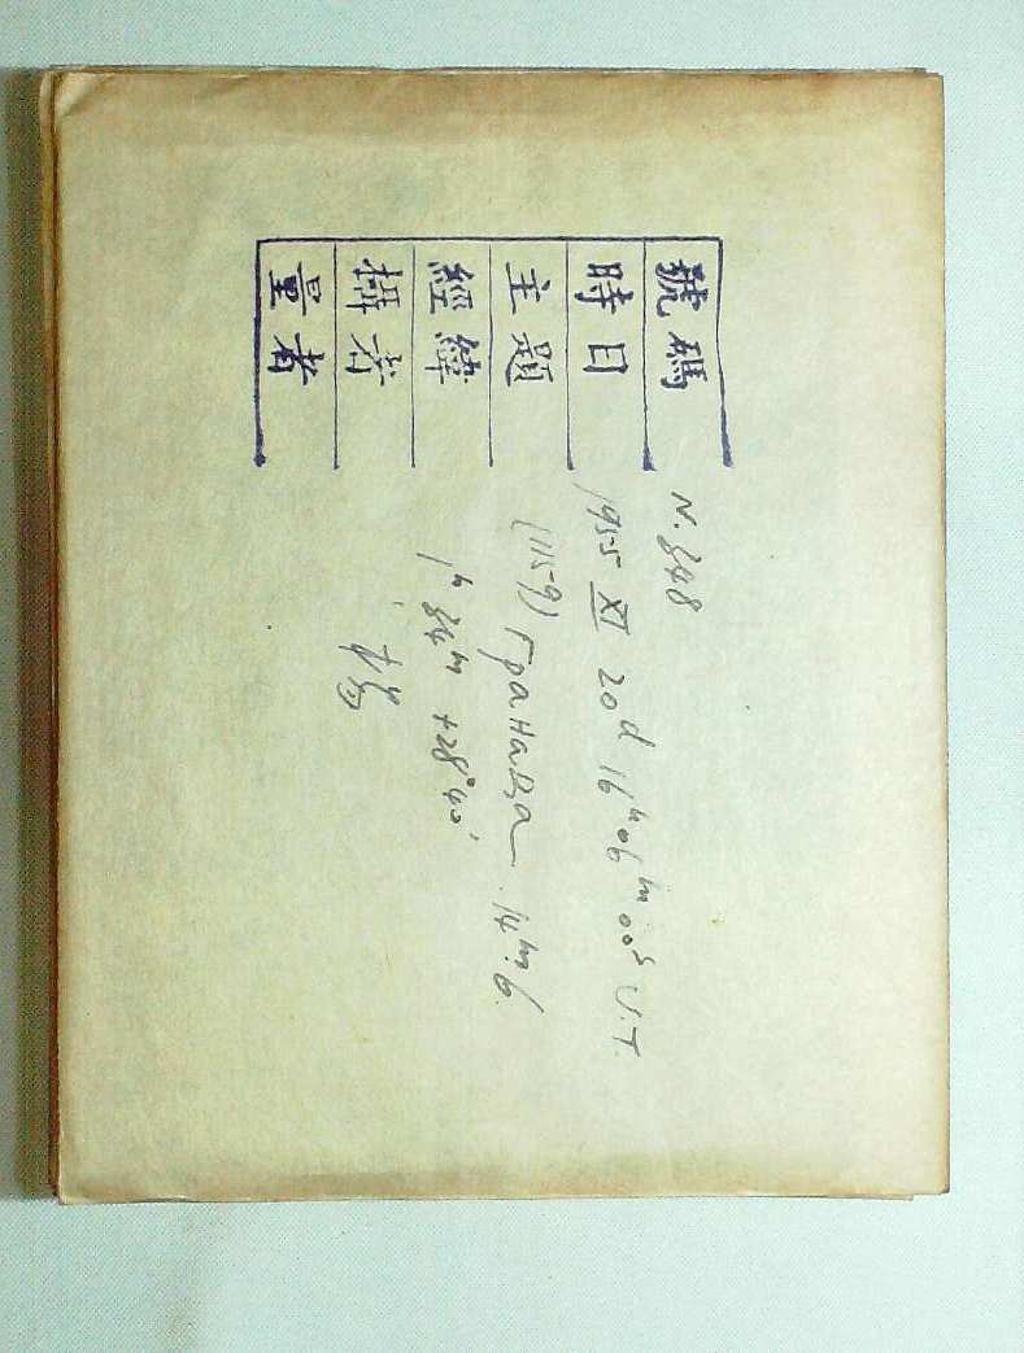 號碼 N. 348
時日 1955 XI 20d 16h06m00s U.T.
主題 (1159) Гранада 14m.6
經緯 1h 34m +28°40'
攝者 楊
量者